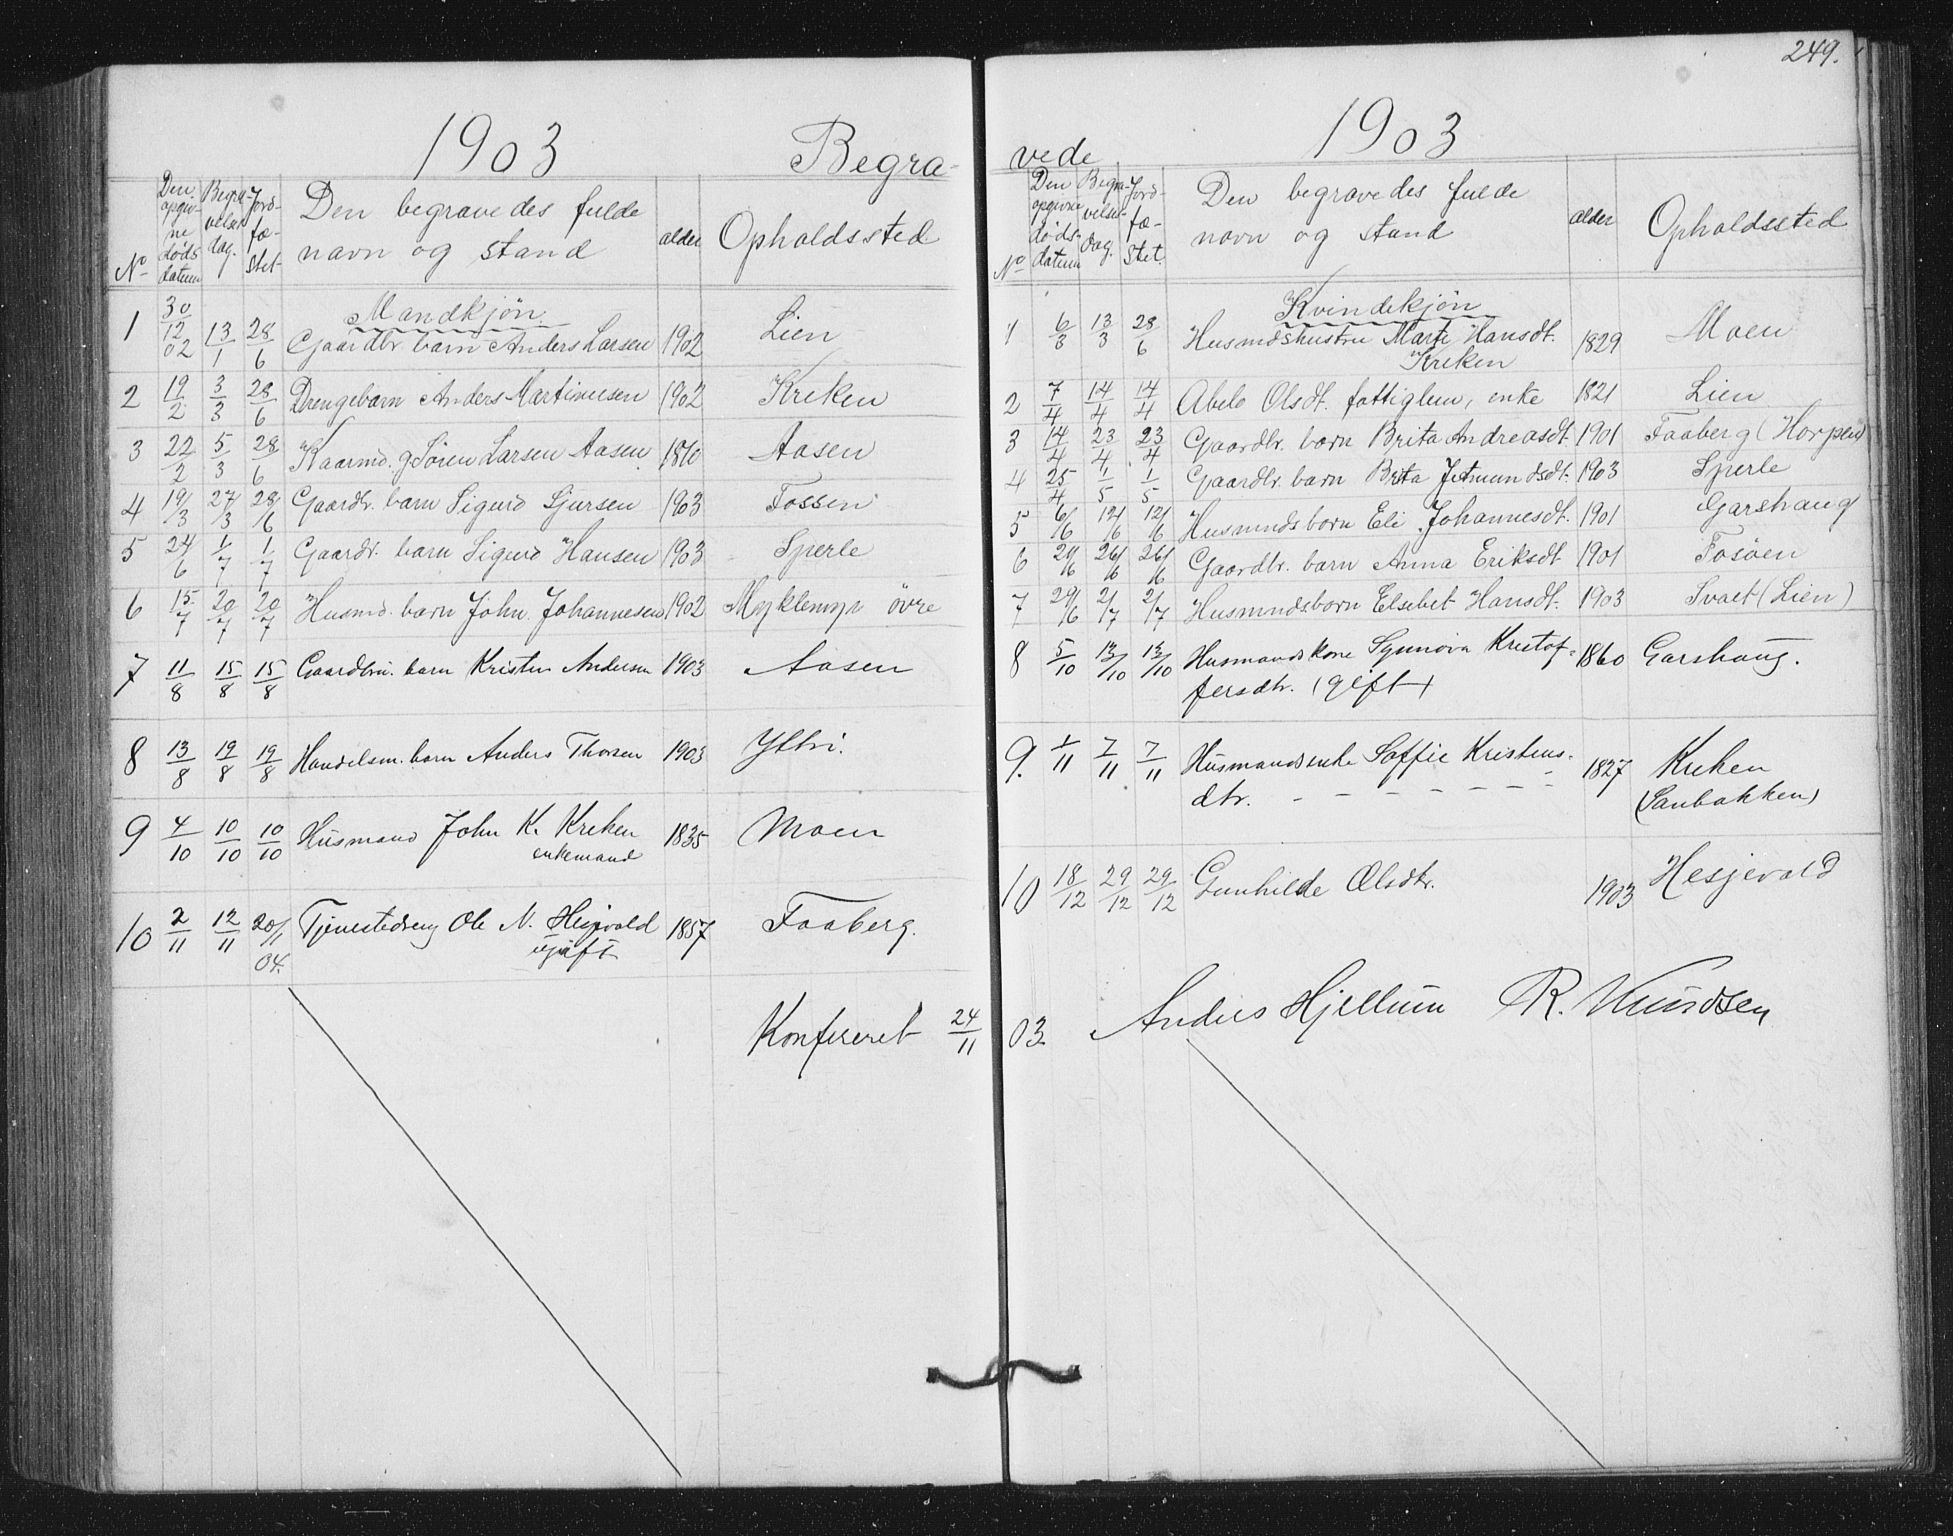 249.
1903 Begra-
No Den opgivne døds datum Begravelses dag. Jordfæstet Den begravedes fulde navn og stand alder Opholdssted
Mandkjøn
1 30/12 02 13/1 28/6 Gaardbr. barn Anders Larsen 1902 Lien
2 19/2 3/3 28/6 Drengebarn Anders Martinusen 1902 Kreken
3 22/2 5/3 28/6 Kaarmd. g. Søren Larsen Aasen Aasen
4 19/3 27/3 28/6 Gaardbr. barn Sigurd Sjursen 1903 Fossen
5 24/6 1/7 1/7 Gaardr. barn Sigurd Hansen 1903 Sperle
6 15/7 20/7 20/7 Husmd. barn John Johannesen 1902 Myklemyr øvre
7 11/8 15/8 15/8 Gaardbru. barn Kristen Andersen 1903 Aasen
8 13/8 19/8 19/8 Handelsm. barn Anders Thorsen 1903 Yttri.
9 4/10 10/10 10/10 Husmand John K. Kreken 1835 Moen
enkemand
10 2/11 12/11 20/1 04. Tjenestedreng Ole N. Hesjevold 1857 Faaberg.
ugift
Konfereret 24/11
1903
vede
No Den opgivne døds-datum Begravelses-dag. Jordfæ-stet. Den begravedes fulde navn og stand alder Opholdssted
Kvindekjøn
1 6/3 13/3 28/6 Husmdshustru Marte Hansdt. 1829 Moen
Kreken
2 7/4 14/4 14/4 Abelo Olsdt. fattiglem, enke 1821 Lien
3 14/4 23/4 23/4 Gaardbr. barn Brita Andreasdt. 1901 Faaberg (Horpen)
4 25/4 1/5 1/5 Gaardbr. barn Brita Jetmundsdt. 1903 Sperle
5 6/6 12/6 12/6 Husmndsbarn Eli Johannesdt. 1901 Garshaug
6 26/6 26/6 Gaardbr. barn Anna Eriksdt. 1901 Fosøen
7 29/6 2/7 2/7 Husmndsbarn Elsebet Hansdt. 1903 Svaet (Lien)
8 5/10 13/10 13/10 Husmandskone Synnøva Kristof- 1860 Garshaug.
fersdtr. (gift)
9. 1/11 7/11 7/11 Husmandsenke Soffie Kristens- 1827 Kreken
dtr. - - - - - - - (Sanbakken)
10 18/12 29/12 29/12 Gunhilde Olsdtr. 1903 Hesjevold
03. Andres Hjellum R. Knudsen